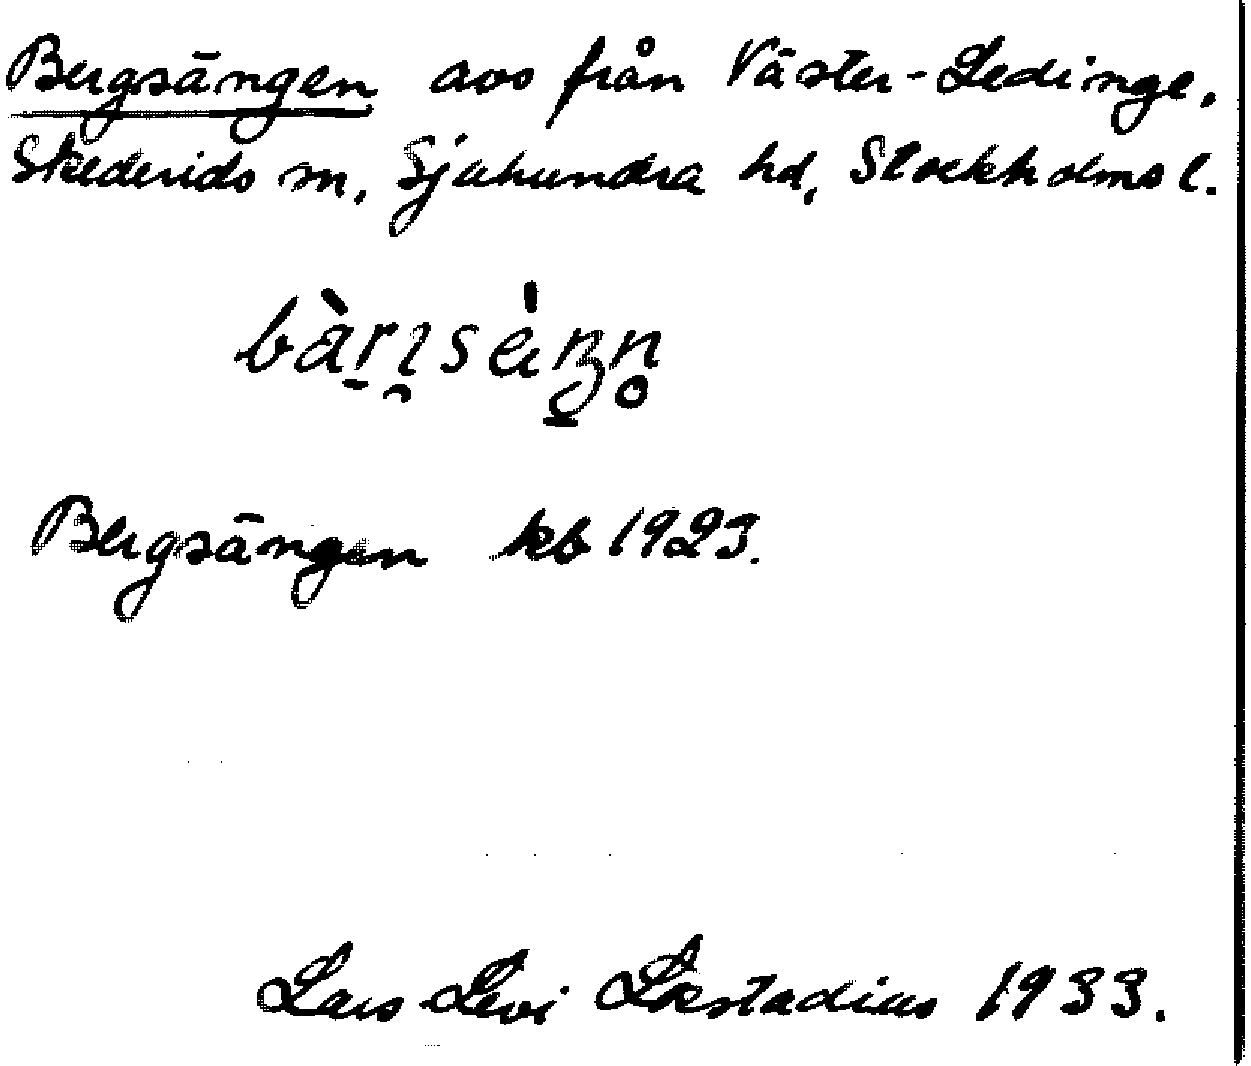 Bergsängen avs från Väster-Ledinge,
Skederids sn, Sjuhundra hd, Stockholms l.
Bergsängen kb 1923.
Lars-Levi Læstadius 1933.